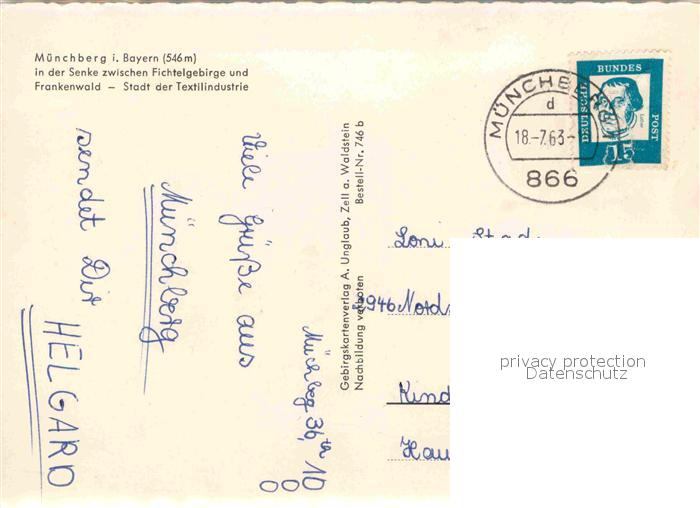 Münchberg i. Bayern (546 m)
in der Senke zwischen Fichtelgebirge und
Frankenwald – Stadt der Textilindustrie
MÜNCHBERG
d
18.-7.63-
866
DEUTSCHE
BUNDES
POST
15
Gebirgskartenverlag A. Unglaub, Zell a. Waldstein
Nachbildung verboten Bestell-Nr. 746 b
Viele Grüße aus
Münchberg
sendet Dir
HELGARD
Loni
privacy protection
Datenschutz